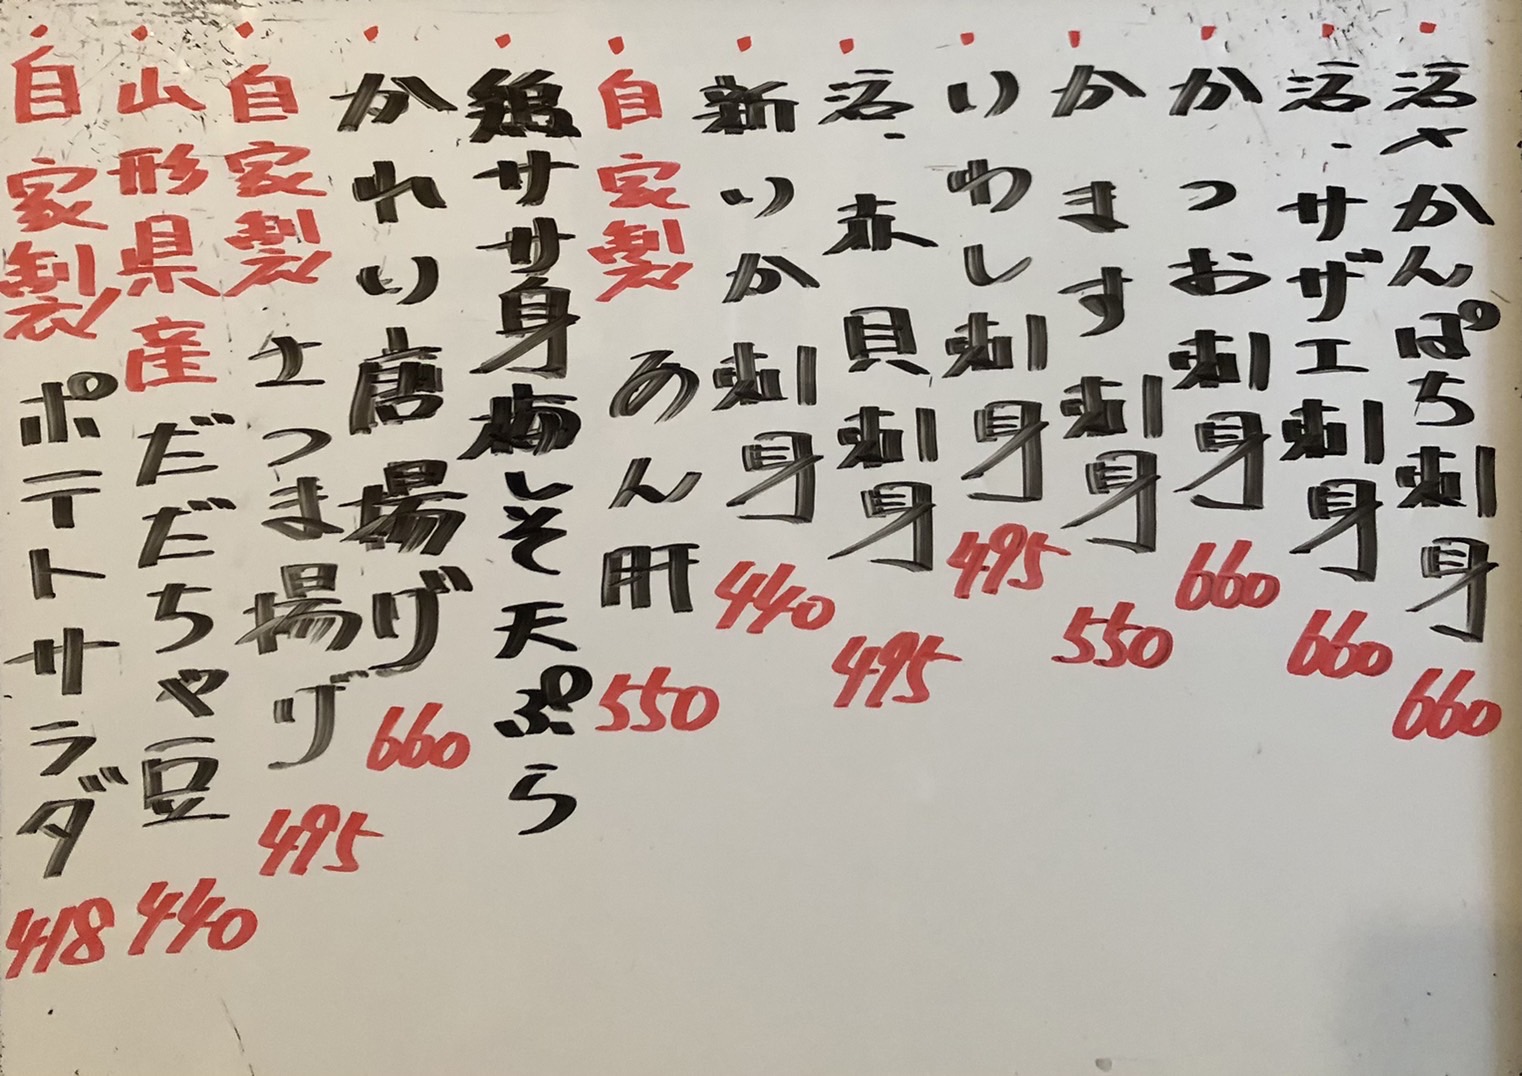 活〆かんぱち刺身 660
活サザエ刺身 660
かつお刺身 660
かます刺身 550
いわし刺身 495
活赤貝刺身 495
新いか刺身 440
自家製あん肝 550
鶏ササ身梅しそ天ぷら
かれい唐揚げ 660
自家製さつま揚げ 495
山形県産だだちゃ豆 440
自家製ポテトサラダ 418